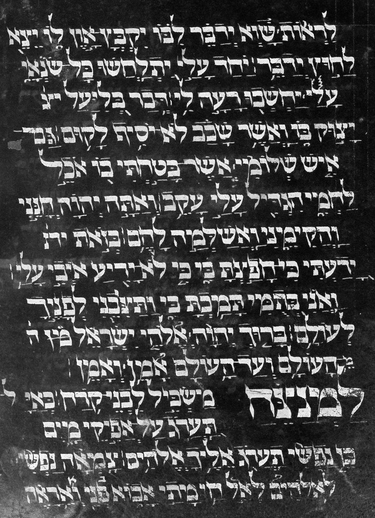 לראות שוא ידבר לבו יקבץ און לו יצא
לחוץ ידבר יחד עלי יתלחשו כל שנאי
עלי יחשבו רעה לי דבר בליעל
יצוק בו ואשר שכב לא יוסיף לקום גם
איש שלומי אשר בטחתי בו אכל
לחמי הגדיל עלי עקב ואתה יהוה חנני
והקימני ואשלמה להם בזאת
ידעתי כי חפצת בי כי לא יריע איבי עלי
ואני בתמי תמכת בי ותציבני לפניך
לעולם ברוך יהוה אלהי ישראל מן ה
העולם ועד העולם אמן ואמן
למנצח משכיל לבני קרח כאיל
תערג על אפיקי מים
כן נפשי תערג אליך אלהים צמאה נפשי
לאלהים לאל חי מתי אבוא פני ואראה